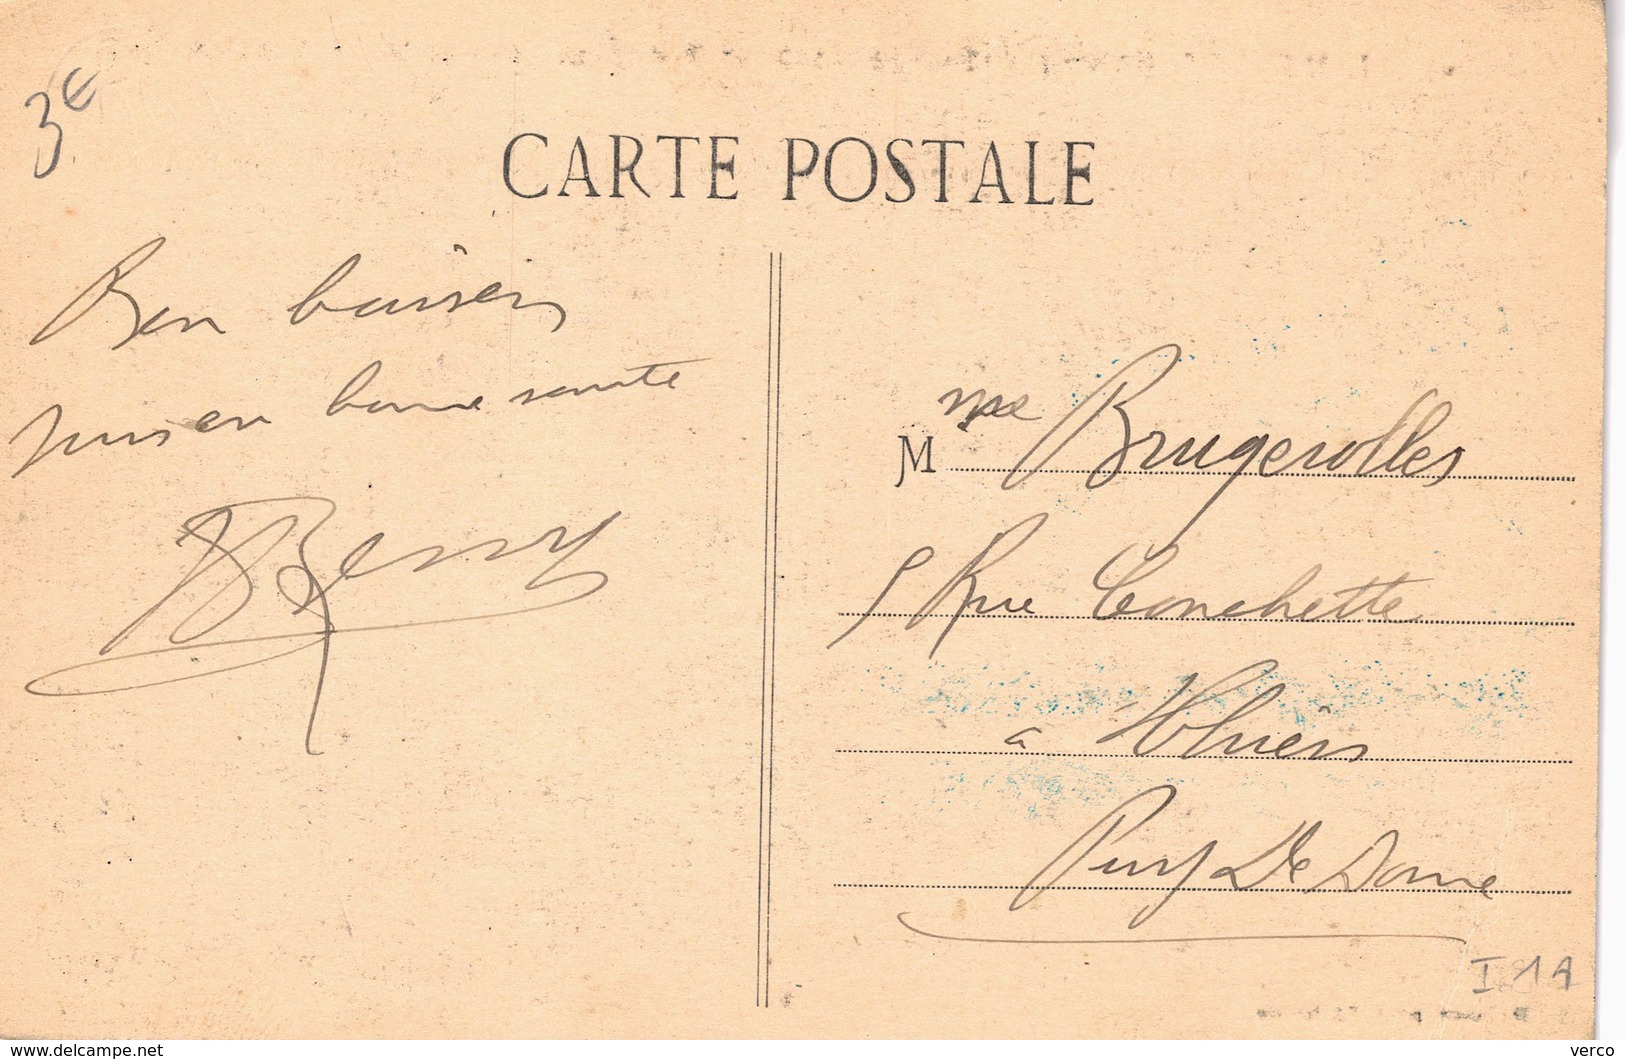 3€
CARTE POSTALE
Bon baisers
suis en bonne santé
Remy
M me Brugerolles
5 Rue Conchette
a Thiers
Puy De Dome
I 1A
delcampe.net
verco